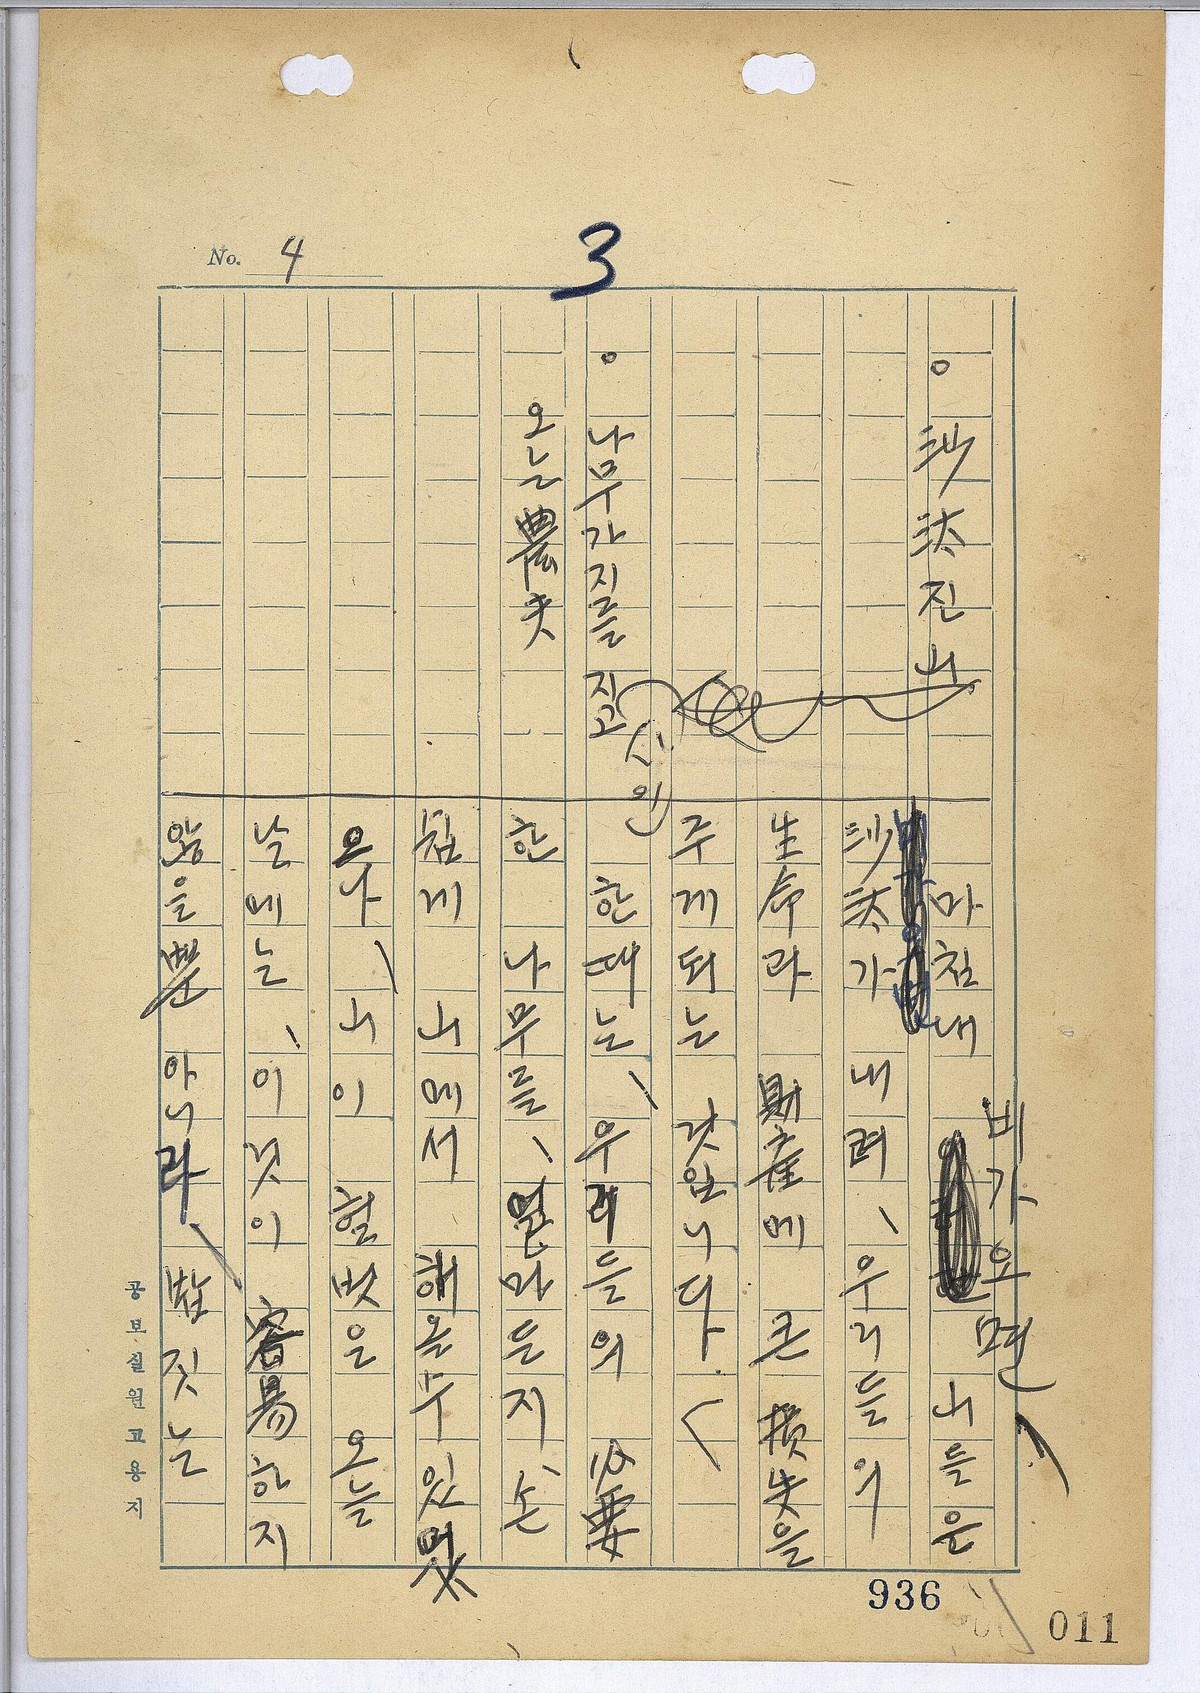 No. 4
3
○ 沙汰진 山
○ 나무가지를 지고
오는 農夫
마침내 비가오면 山들은
沙汰가 내려、우리들의
生命과 財産에 큰 損失을
주게 되는 것입니다.
한때는、우리들의 必要
한 나무를、얼마든지、손
쉽게 山에서 해올수 있었
으나、山이 헐벗은 오늘
날에는、이것이 容易하지
않을뿐 아니라、밥짓는
공보실원고용지
936
011